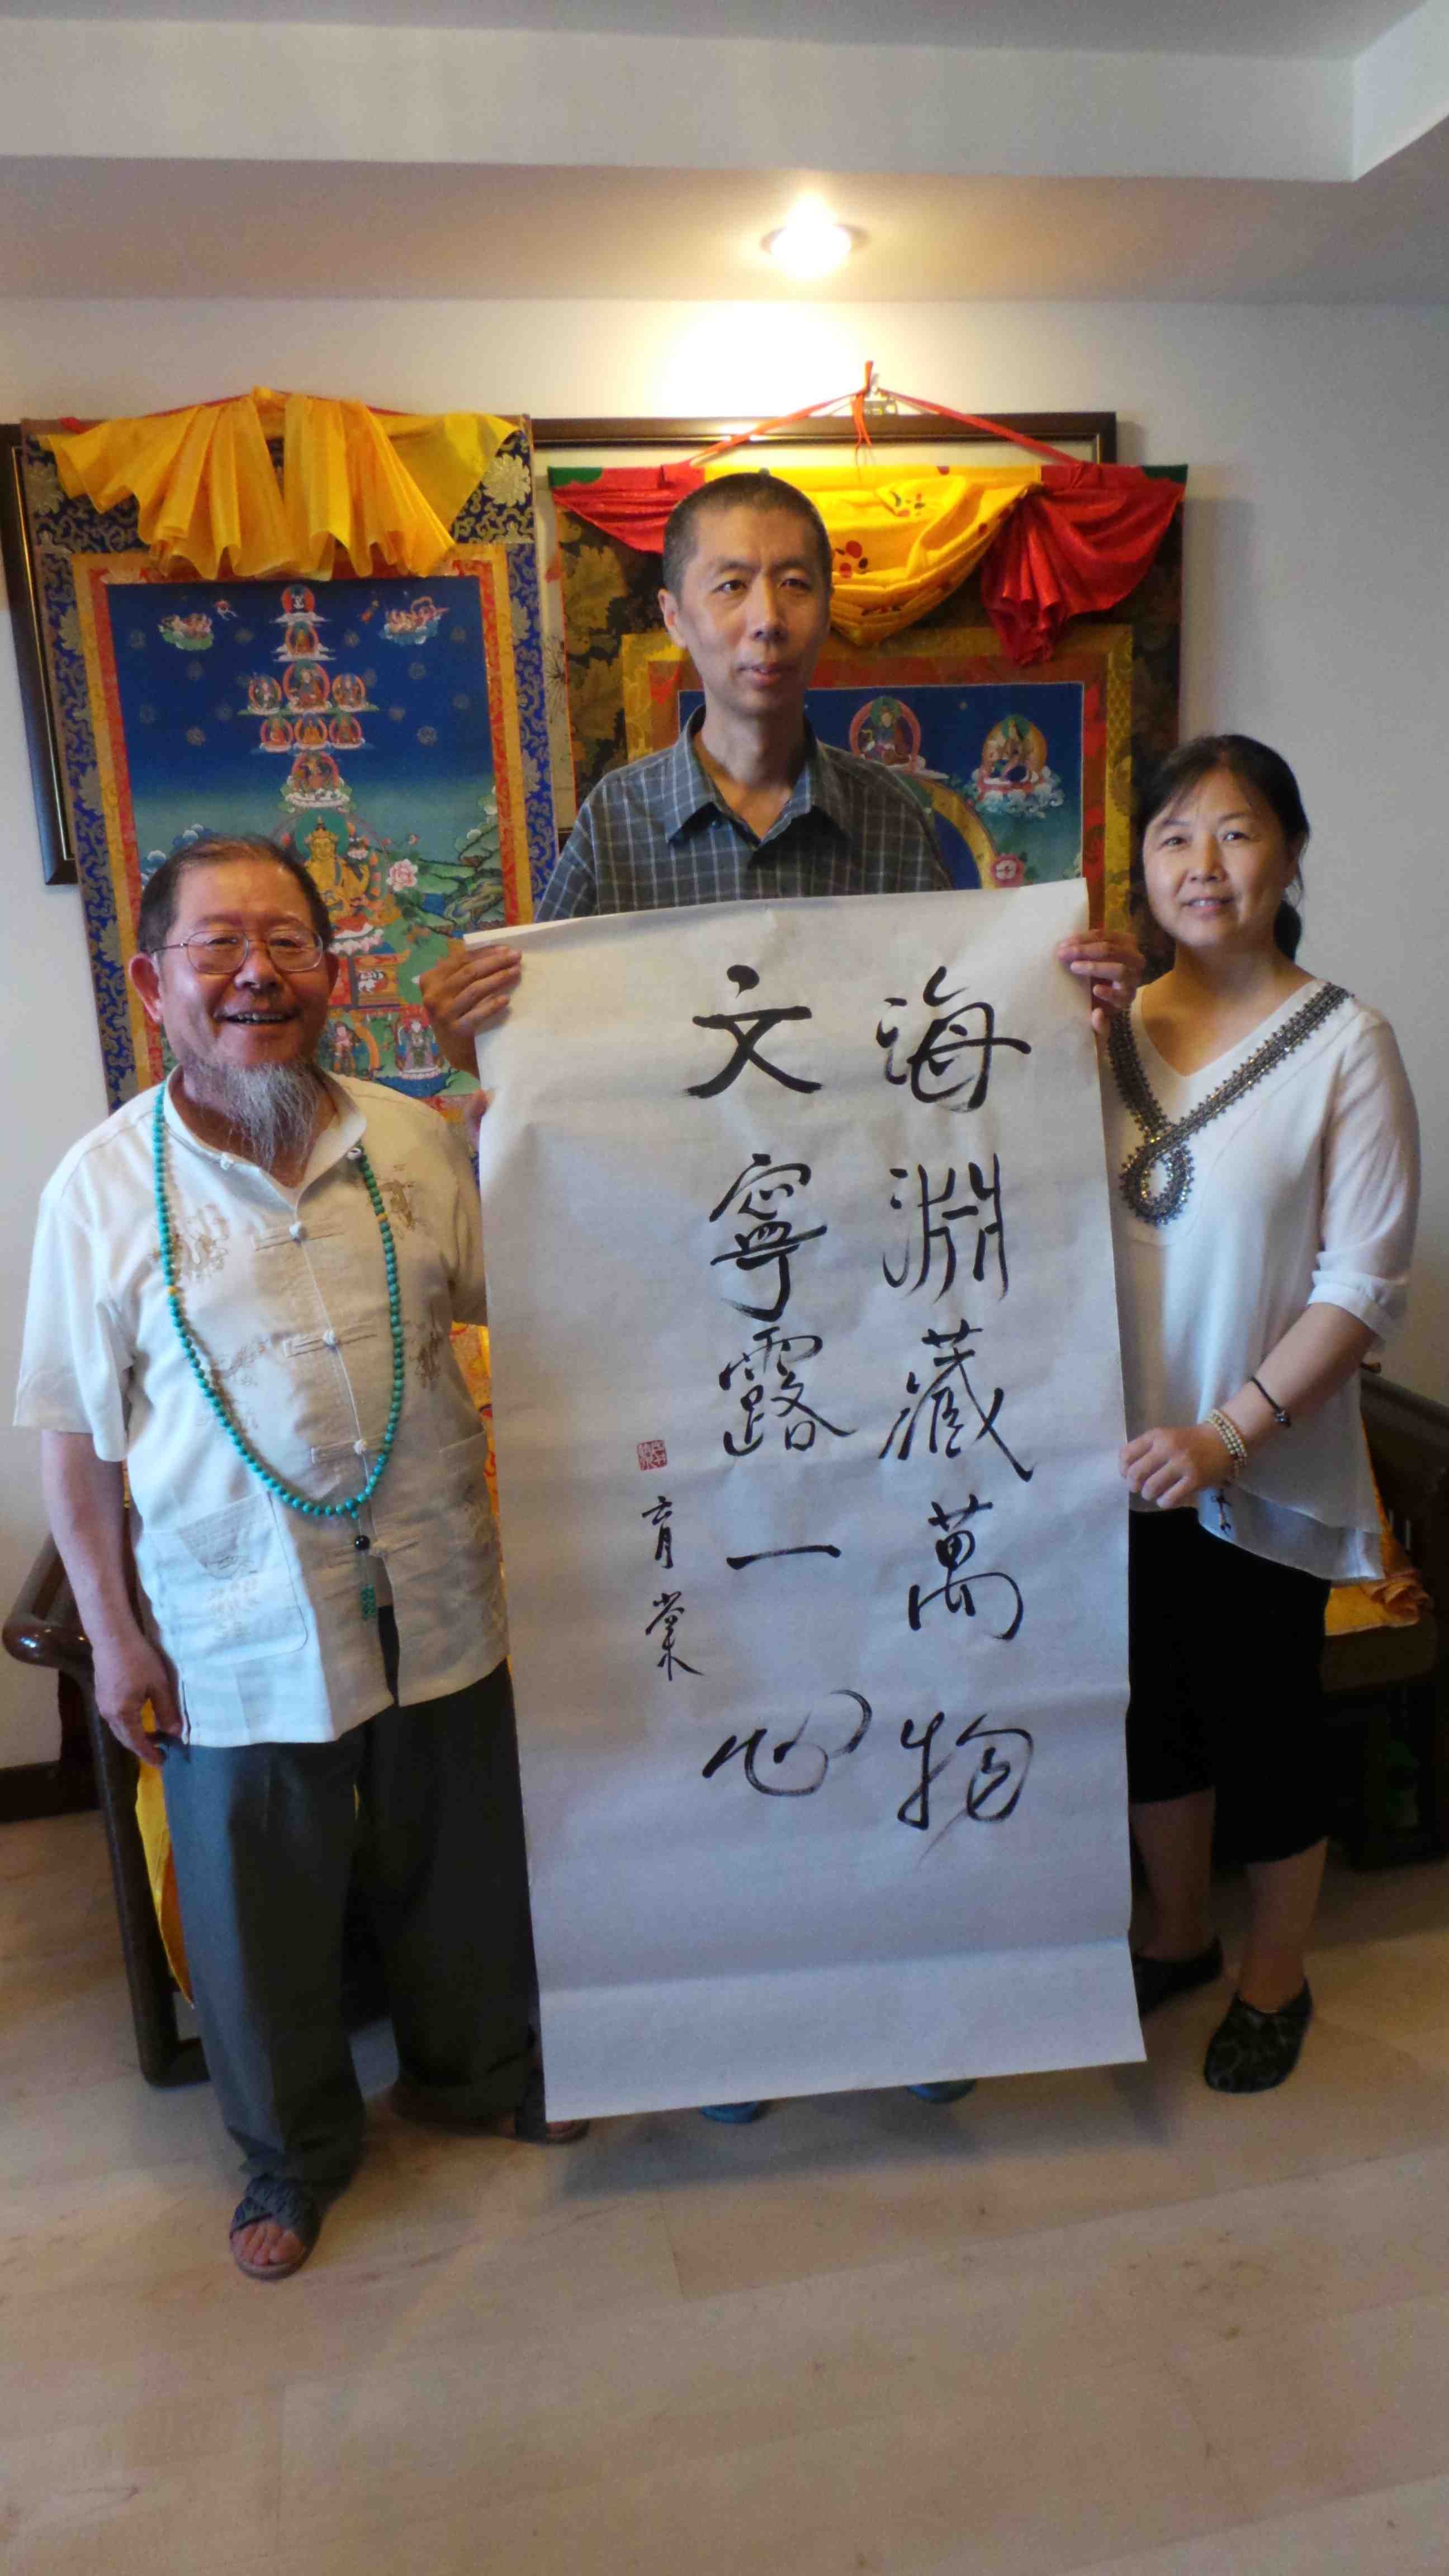 海淵藏萬物
文寧露一心
育棠